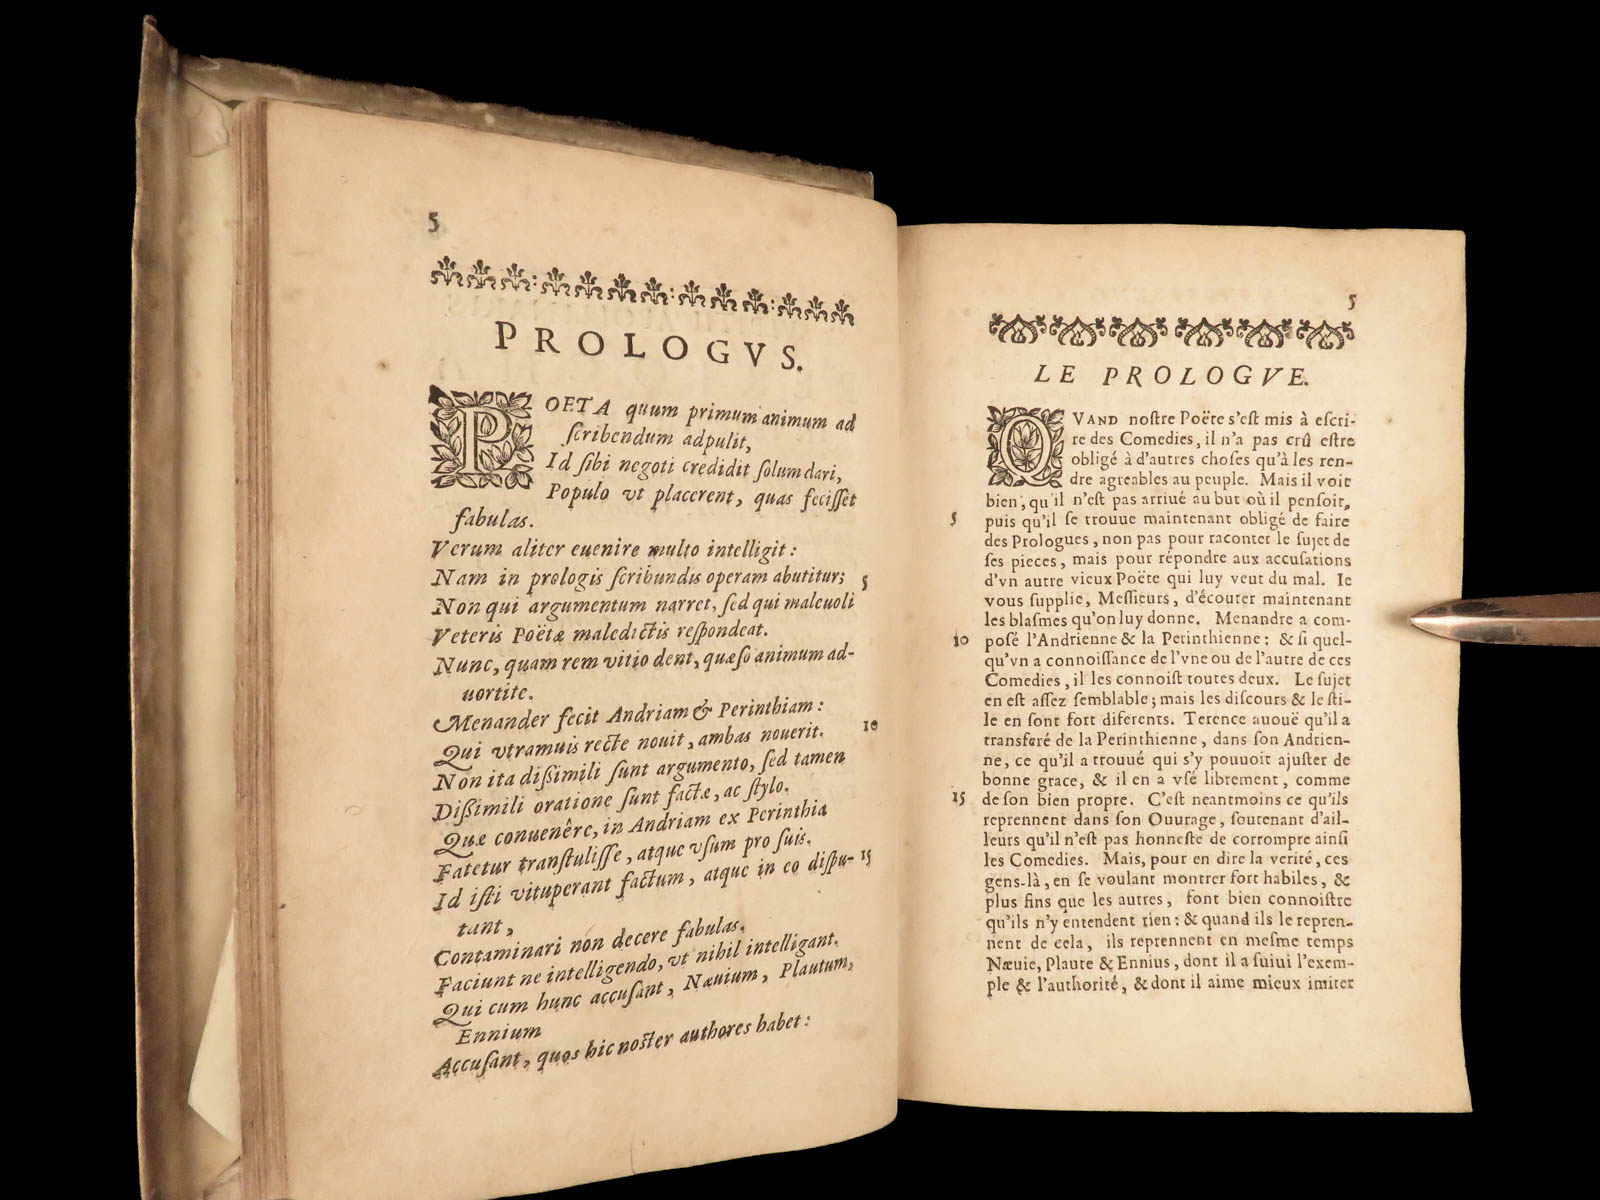 5
PROLOGVS.
POETA quum primum animum ad
ſcribendum adpulit,
Id ſibi negoti credidit ſolum dari,
Populo vt placerent, quas feciſſet
fabulas.
Verum aliter euenire multo intelligit:
Nam in prologis ſcribundis operam abutitur; 5
Non qui argumentum narret, ſed qui maleuoli
Veteris Poëtæ maledictis reſpondeat.
Nunc, quam rem vitio dent, quæſo animum ad-
uortite.
Menander fecit Andriam & Perinthiam:
Qui vtramuis recte nouit, ambas nouerit. 10
Non ita diſſimili ſunt argumento, ſed tamen
Diſſimili oratione ſunt factæ, ac ſtylo.
Quæ conuenêre, in Andriam ex Perinthia
Fatetur tranſtuliſſe, atque vſum pro ſuis.
Id iſti vituperant factum, atque in eo diſpu- 15
tant,
Contaminari non decere fabulas.
Faciunt ne intelligendo, vt nihil intelligant.
Qui cum hunc accuſant, Næuium, Plautum,
Ennium
Accuſant, quos hic noſter authores habet:
5
LE PROLOGVE.
QVAND noſtre Poëte s'eſt mis à eſcri-
re des Comedies, il n'a pas crû eſtre
obligé à d'autres choſes qu'à les ren-
dre agreables au peuple. Mais il voit
bien, qu'il n'eſt pas arriué au but où il penſoit,
5 puis qu'il ſe trouue maintenant obligé de faire
des Prologues, non pas pour raconter le ſujet de
ſes pieces, mais pour répondre aux accuſations
d'vn autre vieux Poëte qui luy veut du mal. Ie
vous ſupplie, Meſſieurs, d'écouter maintenant
les blaſmes qu'on luy donne. Menandre a com-
10 poſé l'Andrienne & la Perinthienne: & ſi quel-
qu'vn a connoiſſance de l'vne ou de l'autre de ces
Comedies, il les connoiſt toutes deux. Le ſujet
en eſt aſſez ſemblable; mais les diſcours & le ſti-
le en ſont fort diferents. Terence auouë qu'il a
transferé de la Perinthienne, dans ſon Andrien-
ne, ce qu'il a trouué qui s'y pouuoit ajuſter de
bonne grace, & il en a vſé librement, comme
15 de ſon bien propre. C'eſt neantmoins ce qu'ils
reprennent dans ſon Ouurage, ſoutenant d'ail-
leurs qu'il n'eſt pas honneſte de corrompre ainſi
les Comedies. Mais, pour en dire la verité, ces
gens-là, en ſe voulant montrer fort habiles, &
plus fins que les autres, font bien connoiſtre
qu'ils n'y entendent rien: & quand ils le repren-
nent de cela, ils reprennent en meſme temps
Næuie, Plaute & Ennius, dont il a ſuiui l'exem-
ple & l'authorité, & dont il aime mieux imiter